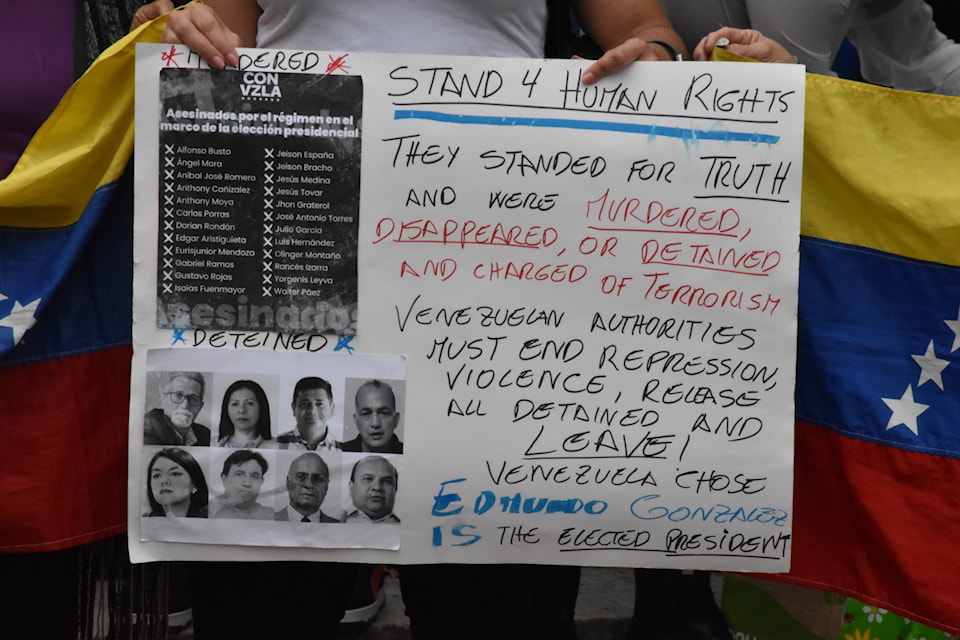 MURDERED
CON
VZLA
Asesinados por el régimen en el
marco de la elección presidencial
Alfonso Busto
Ángel Mora
Aníbal José Romero
Anthony Cañizalez
Anthony Moya
Carlos Porras
Dorian Rondón
Edgar Aristiguieta
Eurisjunior Mendoza
Gabriel Ramos
Gustavo Rojas
Isaías Fuenmayor
Jeison España
Jeison Bracho
Jesús Medina
Jesús Tovar
Jhon Graterol
José Antonio Torres
Julio García
Luis Hernández
Olinger Montaño
Rancés Izarra
Yorgenis Leyva
Walter Páez
Asesinados
DETEINED
STAND 4 HUMAN RIGHTS
THEY STANDED FOR TRUTH
AND WERE MURDERED,
DISAPPEARED, OR DETAINED
AND CHARGED OF TERRORISM
VENEZUELAN AUTHORITIES
MUST END REPRESSION,
VIOLENCE, RELEASE
ALL DETAINED AND
LEAVE!
VENEZUELA CHOSE
EDMUNDO GONZALEZ
IS THE ELECTED PRESIDENT